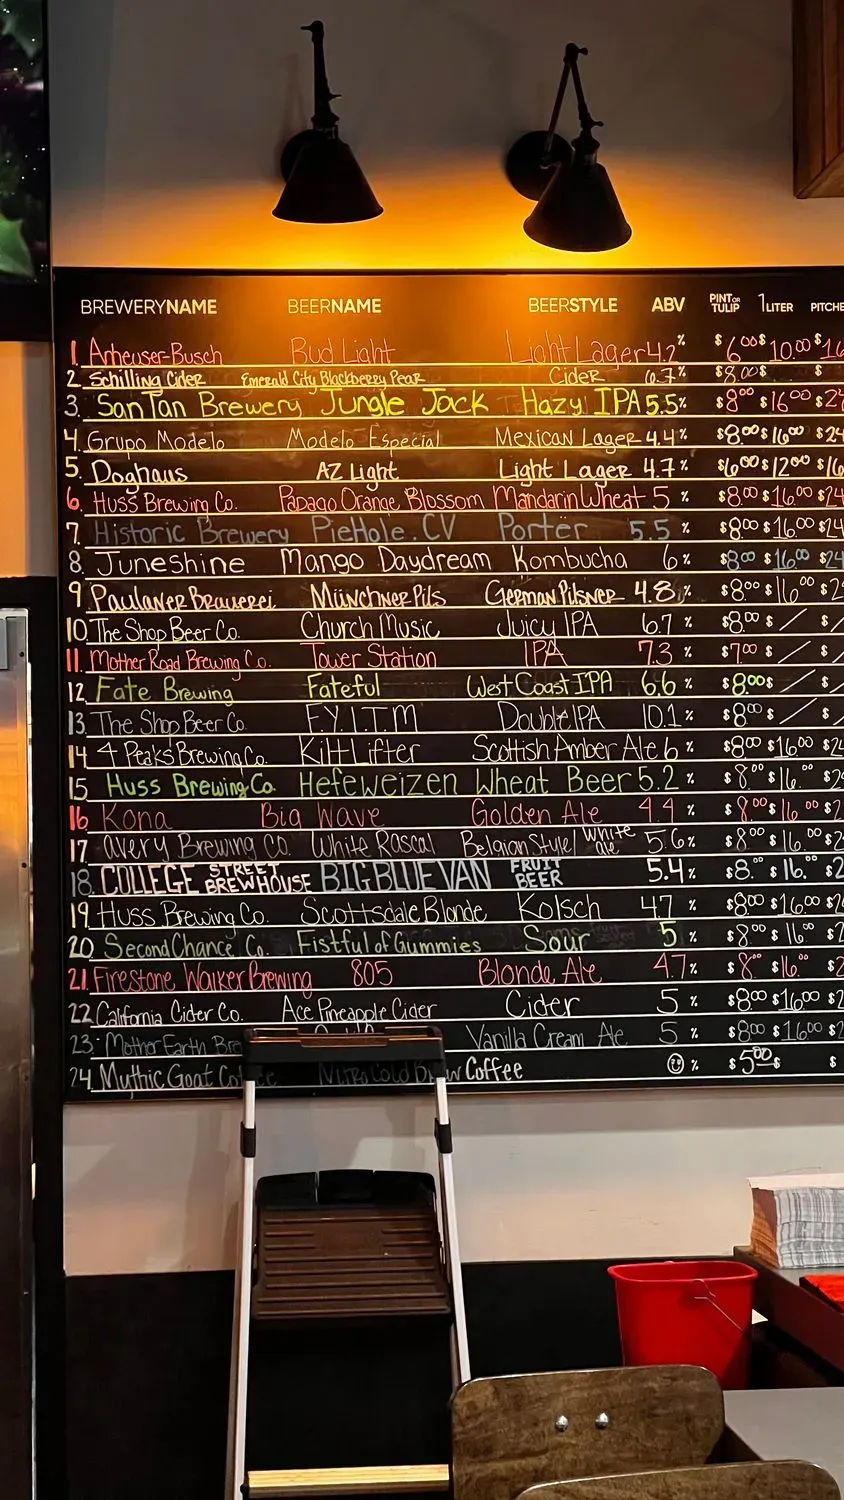 BREWERYNAME BEERNAME BEERSTYLE ABV PINT OR TULIP 1LITER PITCHE
1. Anheuser-Busch Bud Light Light Lager 4.2% $6.00 $10.00 $16
2. Schilling Cider Emerald City Blackberry Pear Cider 6.7% $8.00 $ $
3. SanTan Brewery Jungle Jack Hazy IPA 5.5% $8.00 $16.00 $24
4. Grupo Modelo Modelo Especial Mexican Lager 4.4% $8.00 $16.00 $24
5. Doghaus AZ Light Light Lager 4.7% $6.00 $12.00 $16
6. Huss Brewing Co. Papago Orange Blossom Mandarin Wheat 5% $8.00 $16.00 $24
7. Historic Brewery PieHole.CV Porter 5.5% $8.00 $16.00 $24
8. Juneshine Mango Daydream Kombucha 6% $8.00 $16.00 $24
9. Paulaner Brauerei Münchner Pils German Pilsner 4.8% $8.00 $16.00 $2
10. The Shop Beer Co. Church Music Juicy IPA 6.7% $8.00 $ / $ /
11. Mother Road Brewing Co. Tower Station IPA 7.3% $7.00 $ / $ /
12. Fate Brewing Fateful West Coast IPA 6.6% $8.00 $ / $ /
13. The Shop Beer Co. F.Y.I.T.M Double IPA 10.1% $8.00 $ / $ /
14. 4 Peaks Brewing Co. Kilt Lifter Scottish Amber Ale 6% $8.00 $16.00 $24
15. Huss Brewing Co. Hefeweizen Wheat Beer 5.2% $8.00 $16.00 $2
16. Kona Big Wave Golden Ale 4.4% $8.00 $16.00 $2
17. Avery Brewing Co. White Rascal Belgian Style White Ale 5.6% $8.00 $16.00 $2
18. COLLEGE STREET BREWHOUSE BIG BLUE VAN FRUIT BEER 5.4% $8.00 $16.00 $2
19. Huss Brewing Co. Scottsdale Blonde Kolsch 4.7% $8.00 $16.00 $2
20. Second Chance Co. Fistful of Gummies Sour 5% $8.00 $16.00 $2
21. Firestone Walker Brewing 805 Blonde Ale 4.7% $8.00 $16.00 $2
22. California Cider Co. Ace Pineapple Cider Cider 5% $8.00 $16.00 $2
23. Mother Earth Bre Vanilla Cream Ale 5% $8.00 $16.00 $2
24. Mythic Goat Coffee Nitro Cold Brew Coffee ☺% $5.00 $ $